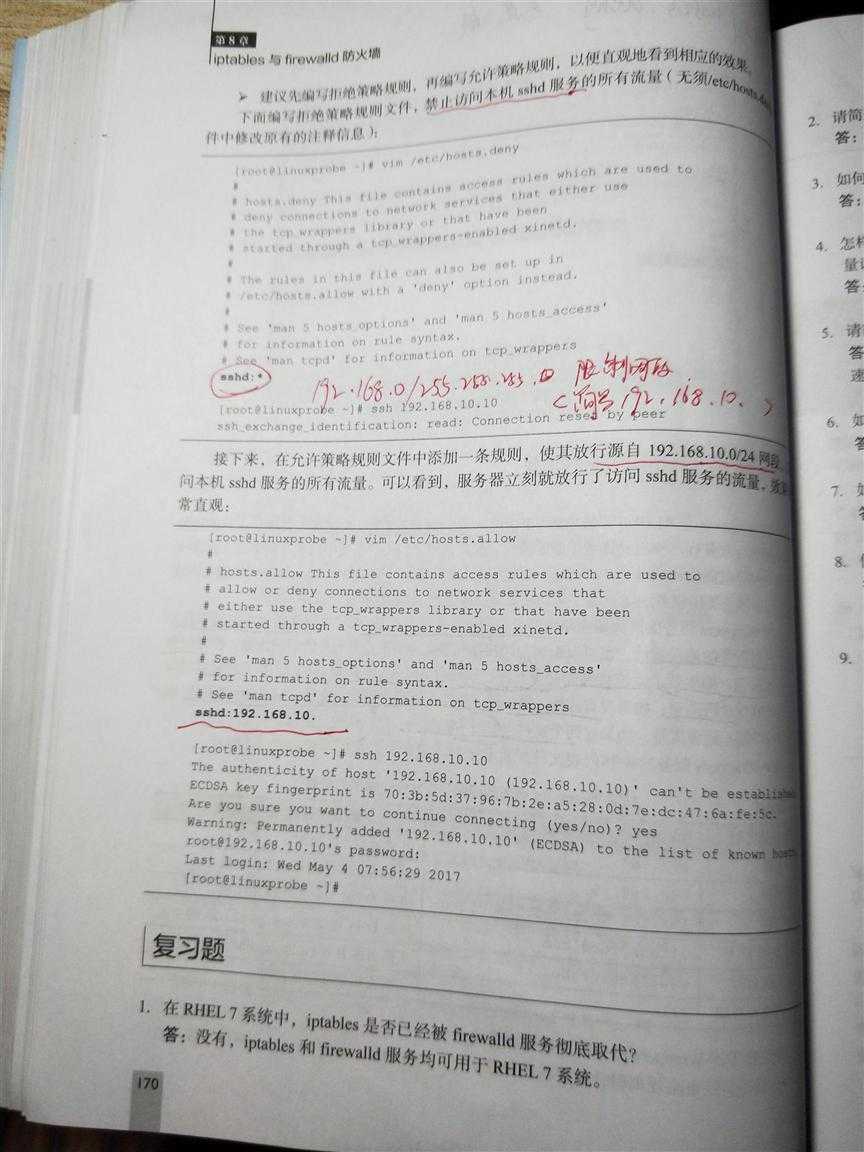 第 8 章
iptables 与 firewalld 防火墙
➢ 建议先编写拒绝策略规则，再编写允许策略规则，以便直观地看到相应的效果。
下面编写拒绝策略规则文件，禁止访问本机 sshd 服务的所有流量（无须/etc/hosts.
件中修改原有的注释信息）：
[root@linuxprobe ~]# vim /etc/hosts.deny
#
# hosts.deny This file contains access rules which are used to
# deny connections to network services that either use
# the tcp_wrappers library or that have been
# started through a tcp_wrappers-enabled xinetd.
#
# The rules in this file can also be set up in
# /etc/hosts.allow with a 'deny' option instead.
#
# See 'man 5 hosts_options' and 'man 5 hosts_access'
# for information on rule syntax.
# See 'man tcpd' for information on tcp_wrappers
sshd:*
192.168.0/255.255.255.0 限制网段
[root@linuxprobe ~]# ssh 192.168.10.10
192.168.10.
ssh_exchange_identification: read: Connection reset by peer
接下来，在允许策略规则文件中添加一条规则，使其放行源自 192.168.10.0/24 网段
问本机 sshd 服务的所有流量。可以看到，服务器立刻就放行了访问 sshd 服务的流量，效
常直观：
[root@linuxprobe ~]# vim /etc/hosts.allow
#
# hosts.allow This file contains access rules which are used to
# allow or deny connections to network services that
# either use the tcp_wrappers library or that have been
# started through a tcp_wrappers-enabled xinetd.
#
# See 'man 5 hosts_options' and 'man 5 hosts_access'
# for information on rule syntax.
# See 'man tcpd' for information on tcp_wrappers
sshd:192.168.10.
[root@linuxprobe ~]# ssh 192.168.10.10
The authenticity of host '192.168.10.10 (192.168.10.10)' can't be established
ECDSA key fingerprint is 70:3b:5d:37:96:7b:2e:a5:28:0d:7e:dc:47:6a:fe:5c.
Are you sure you want to continue connecting (yes/no)? yes
Warning: Permanently added '192.168.10.10' (ECDSA) to the list of known hosts
root@192.168.10.10's password:
Last login: Wed May 4 07:56:29 2017
[root@linuxprobe ~]#
复习题
1. 在 RHEL 7 系统中，iptables 是否已经被 firewalld 服务彻底取代？
答：没有，iptables 和 firewalld 服务均可用于 RHEL 7 系统。
170
2. 请简
答：
3. 如何
答：
4. 怎样
量
答：
5. 请
答
速
6. 如
答
7. 如
8.
9.